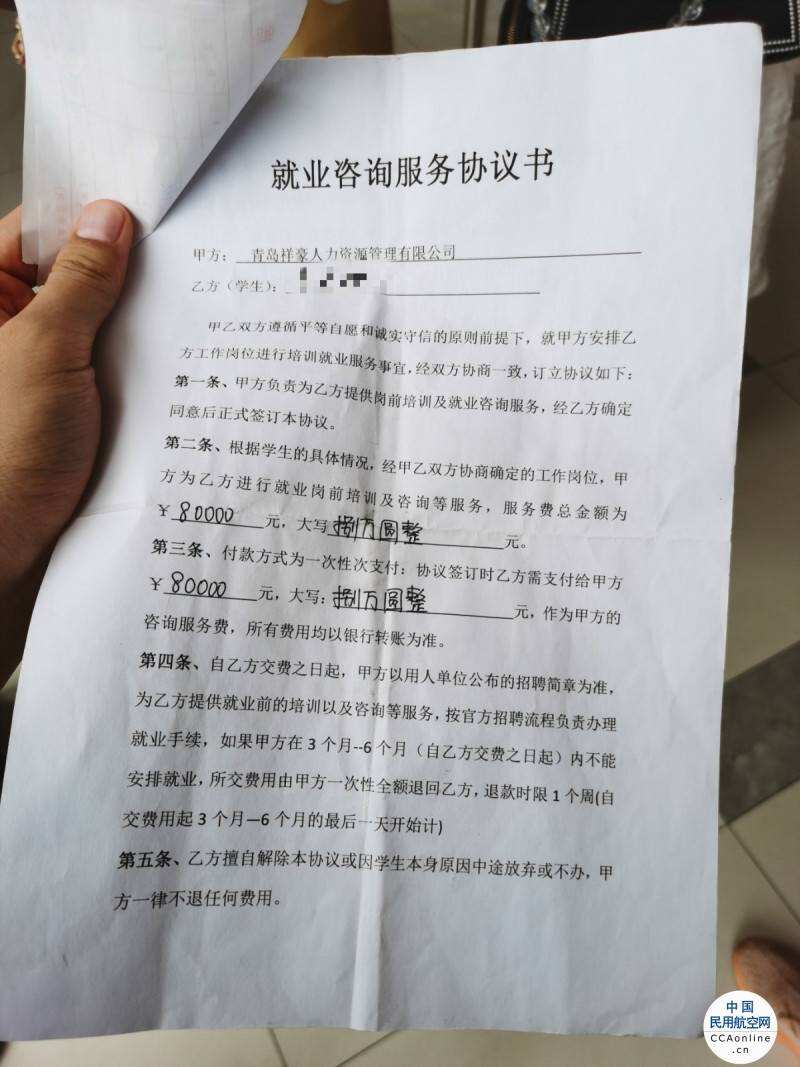 就业咨询服务协议书
甲方：青岛祥豪人力资源管理有限公司
乙方（学生）：
甲乙双方遵循平等自愿和诚实守信的原则前提下，就甲方安排乙
方工作岗位进行培训就业服务事宜，经双方协商一致，订立协议如下：
第一条、甲方负责为乙方提供岗前培训及就业咨询服务，经乙方确定
同意后正式签订本协议。
第二条、根据学生的具体情况，经甲乙双方协商确定的工作岗位，甲
方为乙方进行就业岗前培训及咨询等服务，服务费总金额为
￥80000元，大写捌万圆整元。
第三条、付款方式为一次性次支付：协议签订时乙方需支付给甲方
￥80000元，大写：捌万圆整元，作为甲方的
咨询服务费，所有费用均以银行转账为准。
第四条、自乙方交费之日起，甲方以用人单位公布的招聘简章为准，
为乙方提供就业前的培训以及咨询等服务，按官方招聘流程负责办理
就业手续，如果甲方在3个月--6个月（自乙方交费之日起）内不能
安排就业，所交费用由甲方一次性全额退回乙方，退款时限1个周(自
交费用起3个月—6个月的最后一天开始计)
第五条、乙方擅自解除本协议或因学生本身原因中途放弃或不办，甲
方一律不退任何费用。
中国
民用航空网
CCAonline
.cn